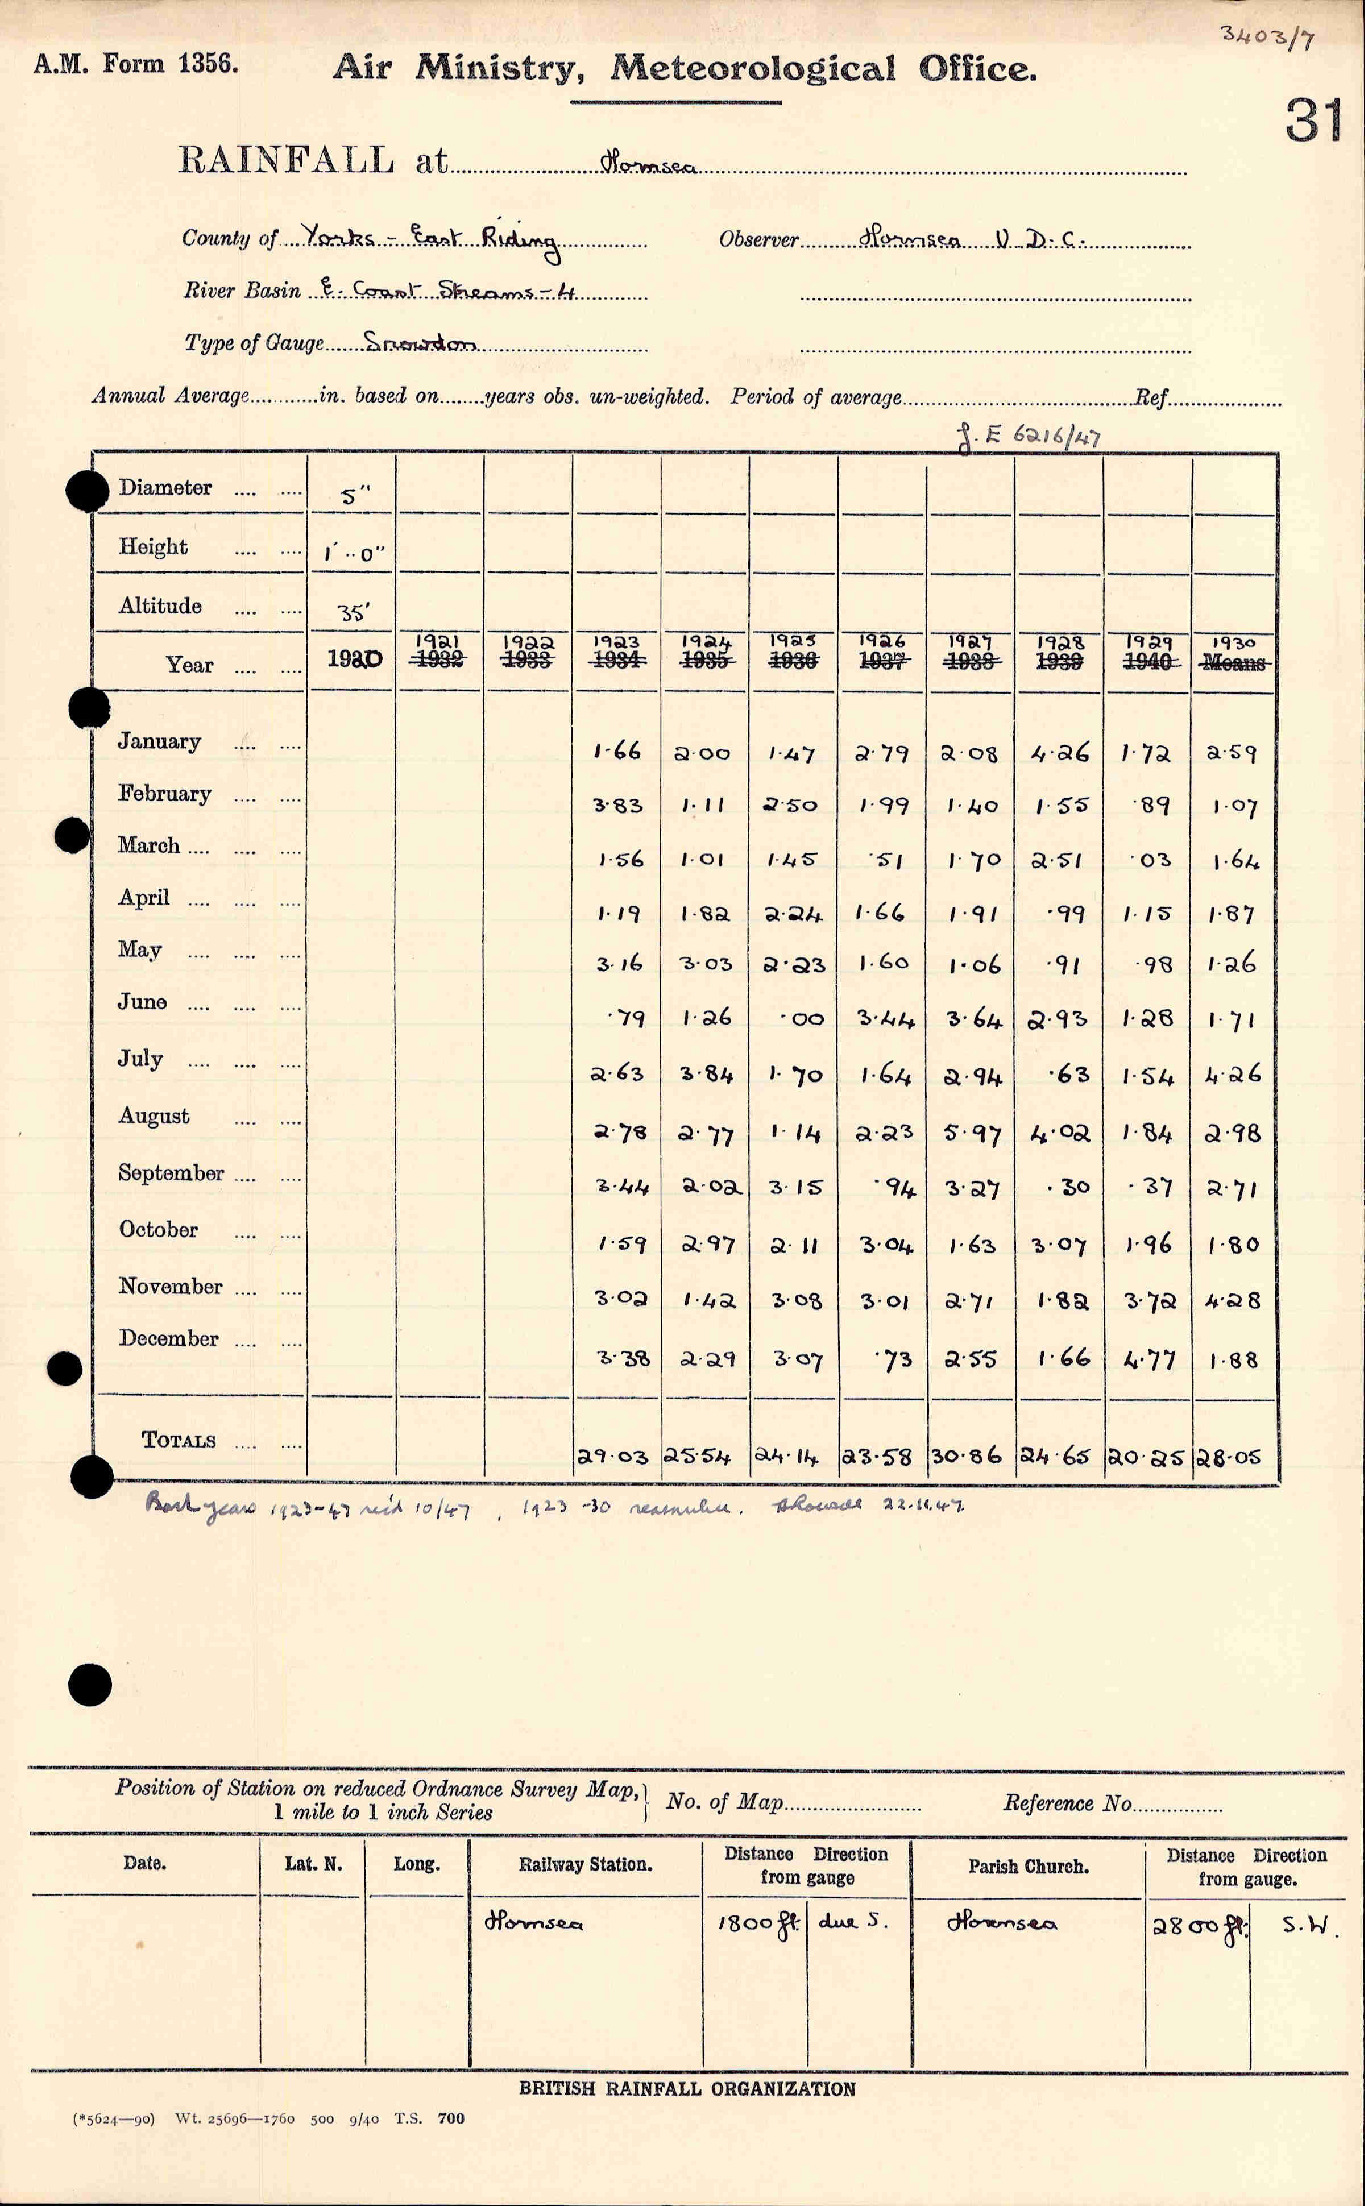 3403/7
A.M. Form 1356. Air Ministry, Meteorological Office.
31
RAINFALL at Hornsea
County of Yorks - East Riding Observer Hornsea U.D.C.
River Basin E. Coast Streams - 4
Type of Gauge Snowdon
Annual Average in. based on years obs. un-weighted. Period of average Ref
J.E 6216/47
Diameter 5"
Height 1'··0"
Altitude 35'
1921 1922 1923 1924 1925 1926 1927 1928 1929 1930
Year 1920 1932 1933 1934 1935 1936 1937 1938 1939 1940 Means
January 1·66 2·00 1·47 2·79 2·08 4·26 1·72 2·59
February 3·83 1·11 2·50 1·99 1·40 1·55 ·89 1·07
March 1·56 1·01 1·45 ·51 1·70 2·51 ·03 1·64
April 1·19 1·82 2·24 1·66 1·91 ·99 1·15 1·87
May 3·16 3·03 2·23 1·60 1·06 ·91 ·98 1·26
June ·79 1·26 ·00 3·44 3·64 2·93 1·28 1·71
July 2·63 3·84 1·70 1·64 2·94 ·63 1·54 4·26
August 2·78 2·77 1·14 2·23 5·97 4·02 1·84 2·98
September 3·44 2·02 3·15 ·94 3·27 ·30 ·37 2·71
October 1·59 2·97 2·11 3·04 1·63 3·07 1·96 1·80
November 3·02 1·42 3·08 3·01 2·71 1·82 3·72 4·28
December 3·38 2·29 3·07 ·73 2·55 1·66 4·77 1·88
TOTALS 29·03 25·54 24·14 23·58 30·86 24·65 20·25 28·05
Back years 1923-47 rec'd 10/47, 1923-30 22.11.47
Position of Station on reduced Ordnance Survey Map, No. of Map Reference No.
1 mile to 1 inch Series
Date. Lat. N. Long. Railway Station. Distance Direction from gauge Parish Church. Distance Direction from gauge.
Hornsea 1800 ft. due S. Hornsea 2800 ft. S.W.
BRITISH RAINFALL ORGANIZATION
(*5624—90) Wt. 25696—1760 500 9/40 T.S. 700